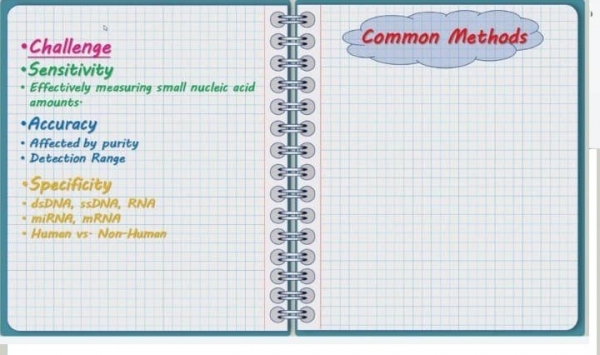 •Challenge
•Sensitivity
• Effectively measuring small nucleic acid
amounts.
•Accuracy
• Affected by purity
• Detection Range
•Specificity
• dsDNA, ssDNA, RNA
• miRNA, mRNA
• Human vs. Non-Human
Common Methods